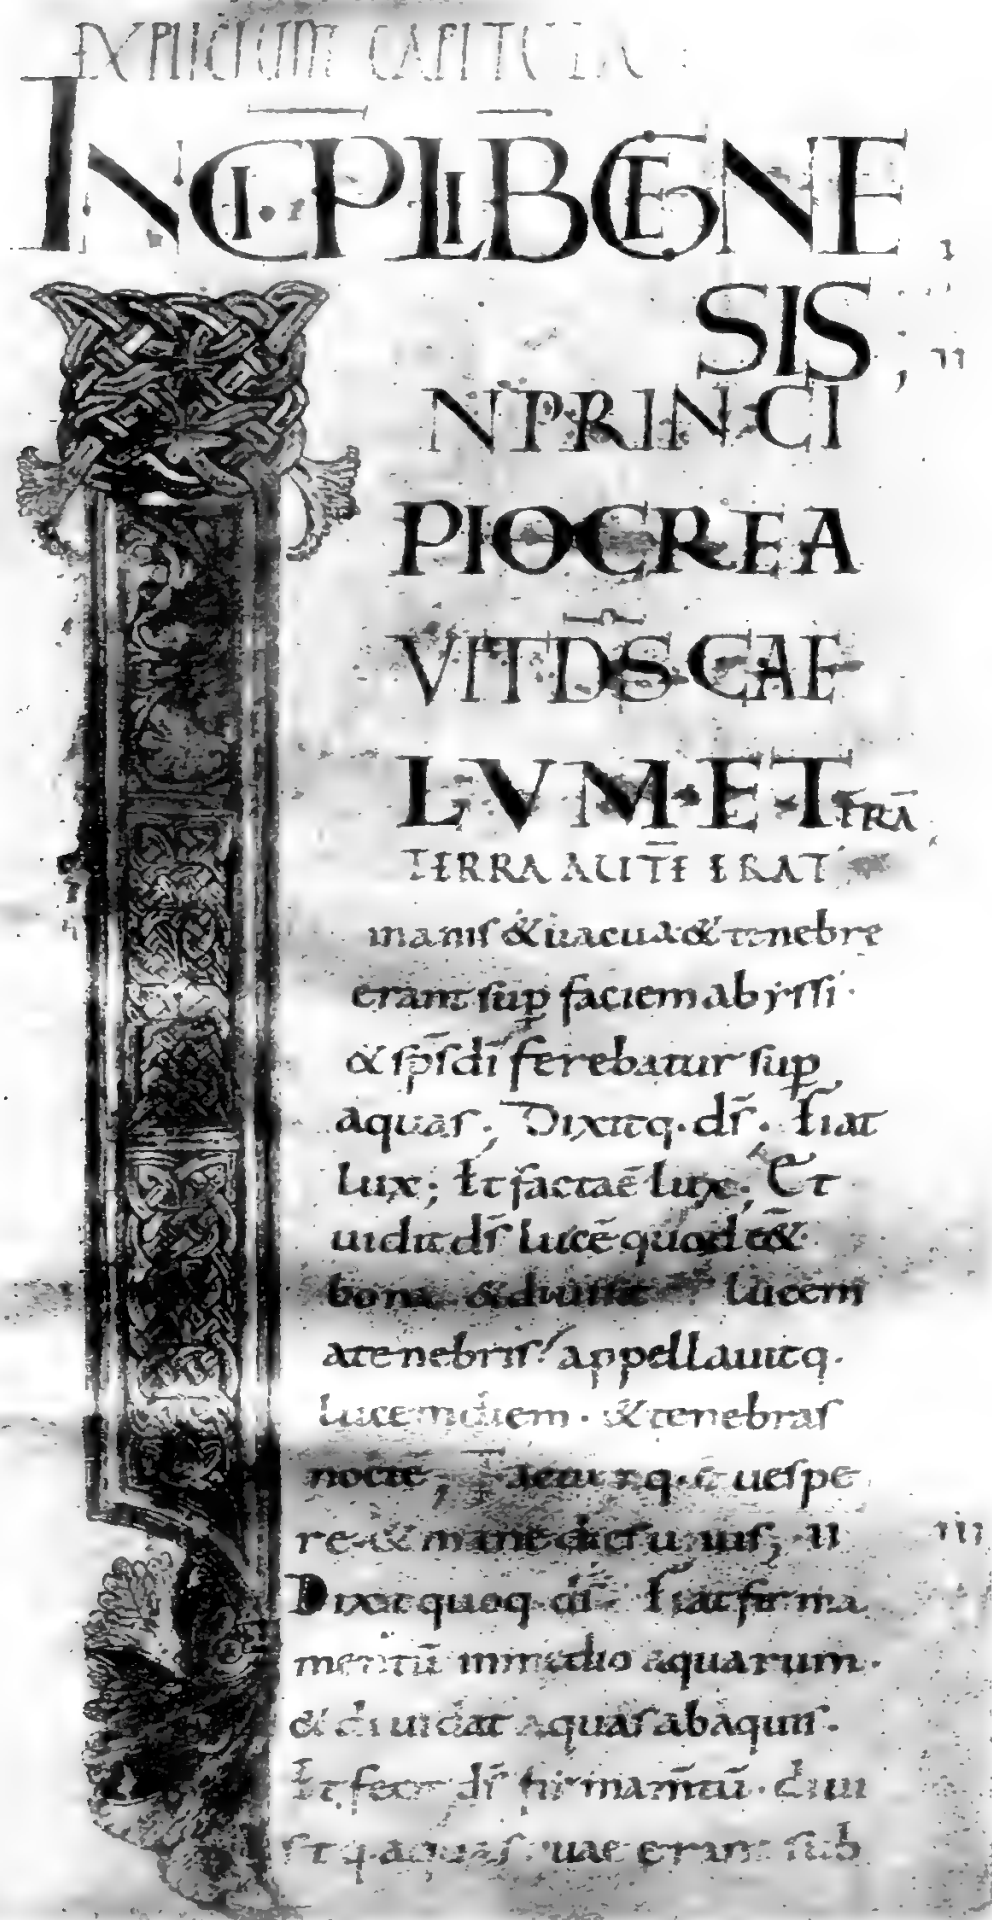 EXPLICIUNT CAPITULA
INCIP LIB GENE
SIS
N PRINCI
PIO CREA
VIT D̄S CAE
LUM·ET TRĀ
TERRA AUTĒ ERAT
inanis & uacua & tenebre
erant sup faciem abyssi·
& sp̄s dī ferebatur sup
aquas; Dixitq· ds̄· Fiat
lux; Et facta ē lux; Et
uidit ds̄ lucē quod eēt
bona & diuisit lucem
a tenebris· appellauitq·
lucem diem· & tenebras
noctē; q· ē uespe
re· & mane dies unus; II III
Dixit quoq ds̄ Fiat firma
mentū in medio aquarum·
& diuidat aquas ab aquis·
Et fecit ds̄ firmam̄tū· diui
sitq· aquas quae erant sub